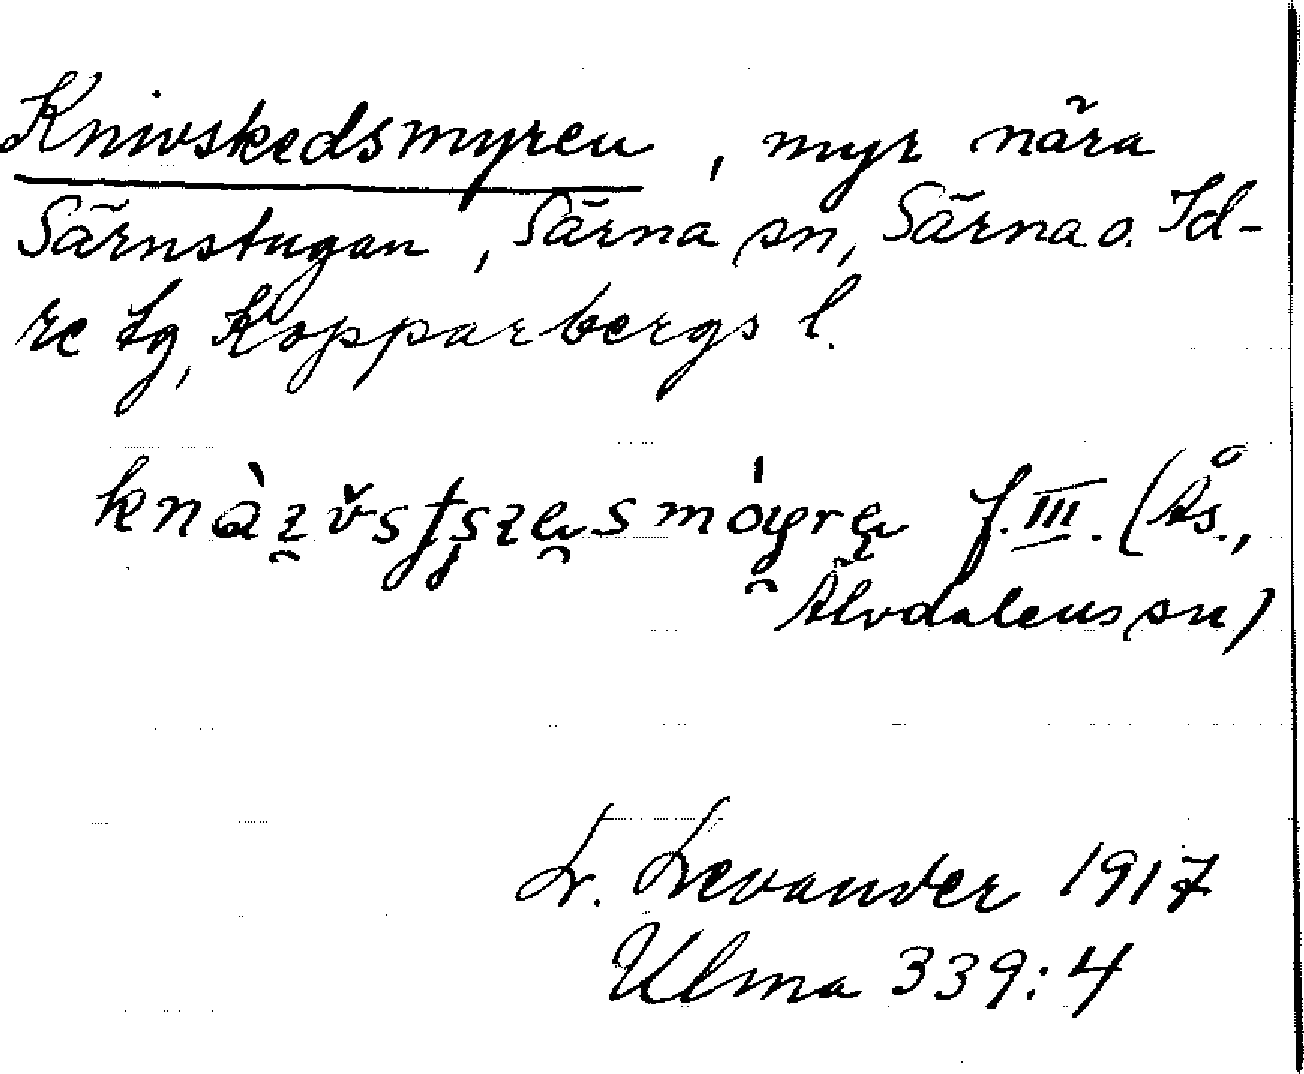 Knivskedsmyren, myr nära
Särnstugan, Särna sn, Särna o. Id-
re tg, Kopparbergs l.
f. III. (Ås.,
Älvdalens sn)
L. Levander 1917
Ulma 339:4